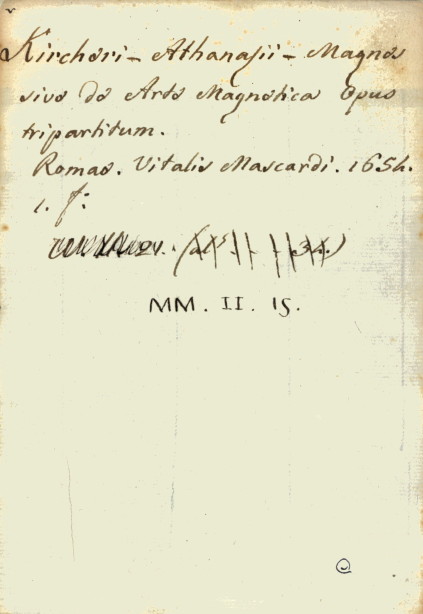 Kircheri - Athanasii - Magnes
sive de Arte Magnetica Opus
tripartitum.
Romae. Vitalis Mascardi. 1654.
1. f:
MM. II. 15.